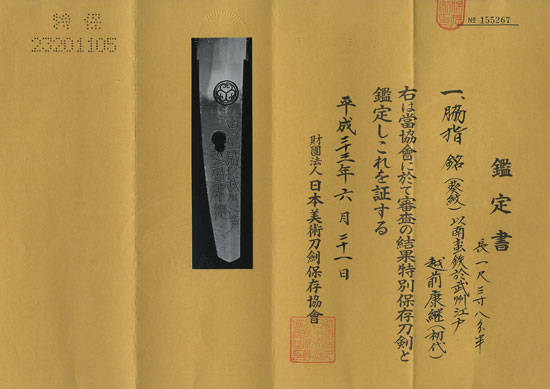 № 155267
鑑定書
長一尺三寸八分半
一、脇指 銘(葵紋)以南蛮鉄於武州江戸
越前康継(初代)
右は當協會に於て審査の結果特別保存刀剣と
鑑定しこれを証する
平成二十三年六月二十一日
財團法人 日本美術刀劍保存協會
特保
23201105